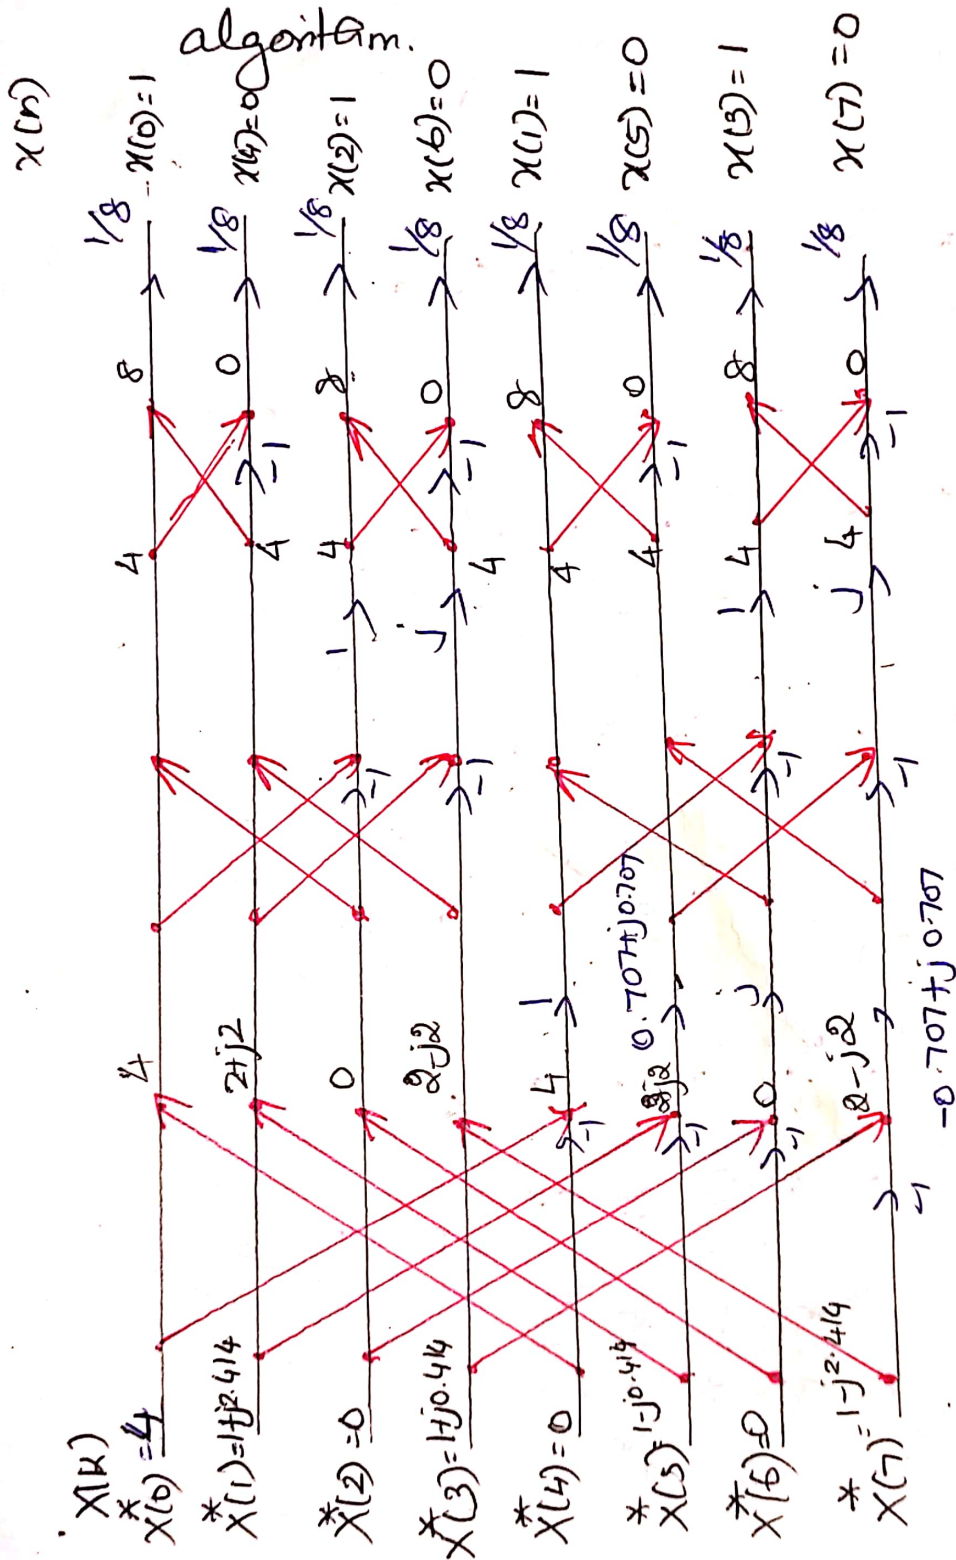 algorithm.
X(k)
x(n)
X*(0)=4
4
4
8
1/8
x(0)=1
X*(1)=1+j2.414
2+j2
4
-1
0
1/8
x(4)=0
X*(2)=0
0
-1
1
4
8
1/8
x(2)=1
X*(3)=1+j0.414
2-j2
-1
j
4
-1
0
1/8
x(6)=0
X*(4)=0
-1
4
1
4
8
1/8
x(1)=1
X*(5)=1-j0.414
-1
j2
0.707+j0.707
4
-1
0
1/8
x(5)=0
X*(6)=0
-1
0
j
-1
1
4
8
1/8
x(3)=1
X*(7)=1-j2.414
-1
2-j2
-0.707+j0.707
-1
j
4
-1
0
1/8
x(7)=0